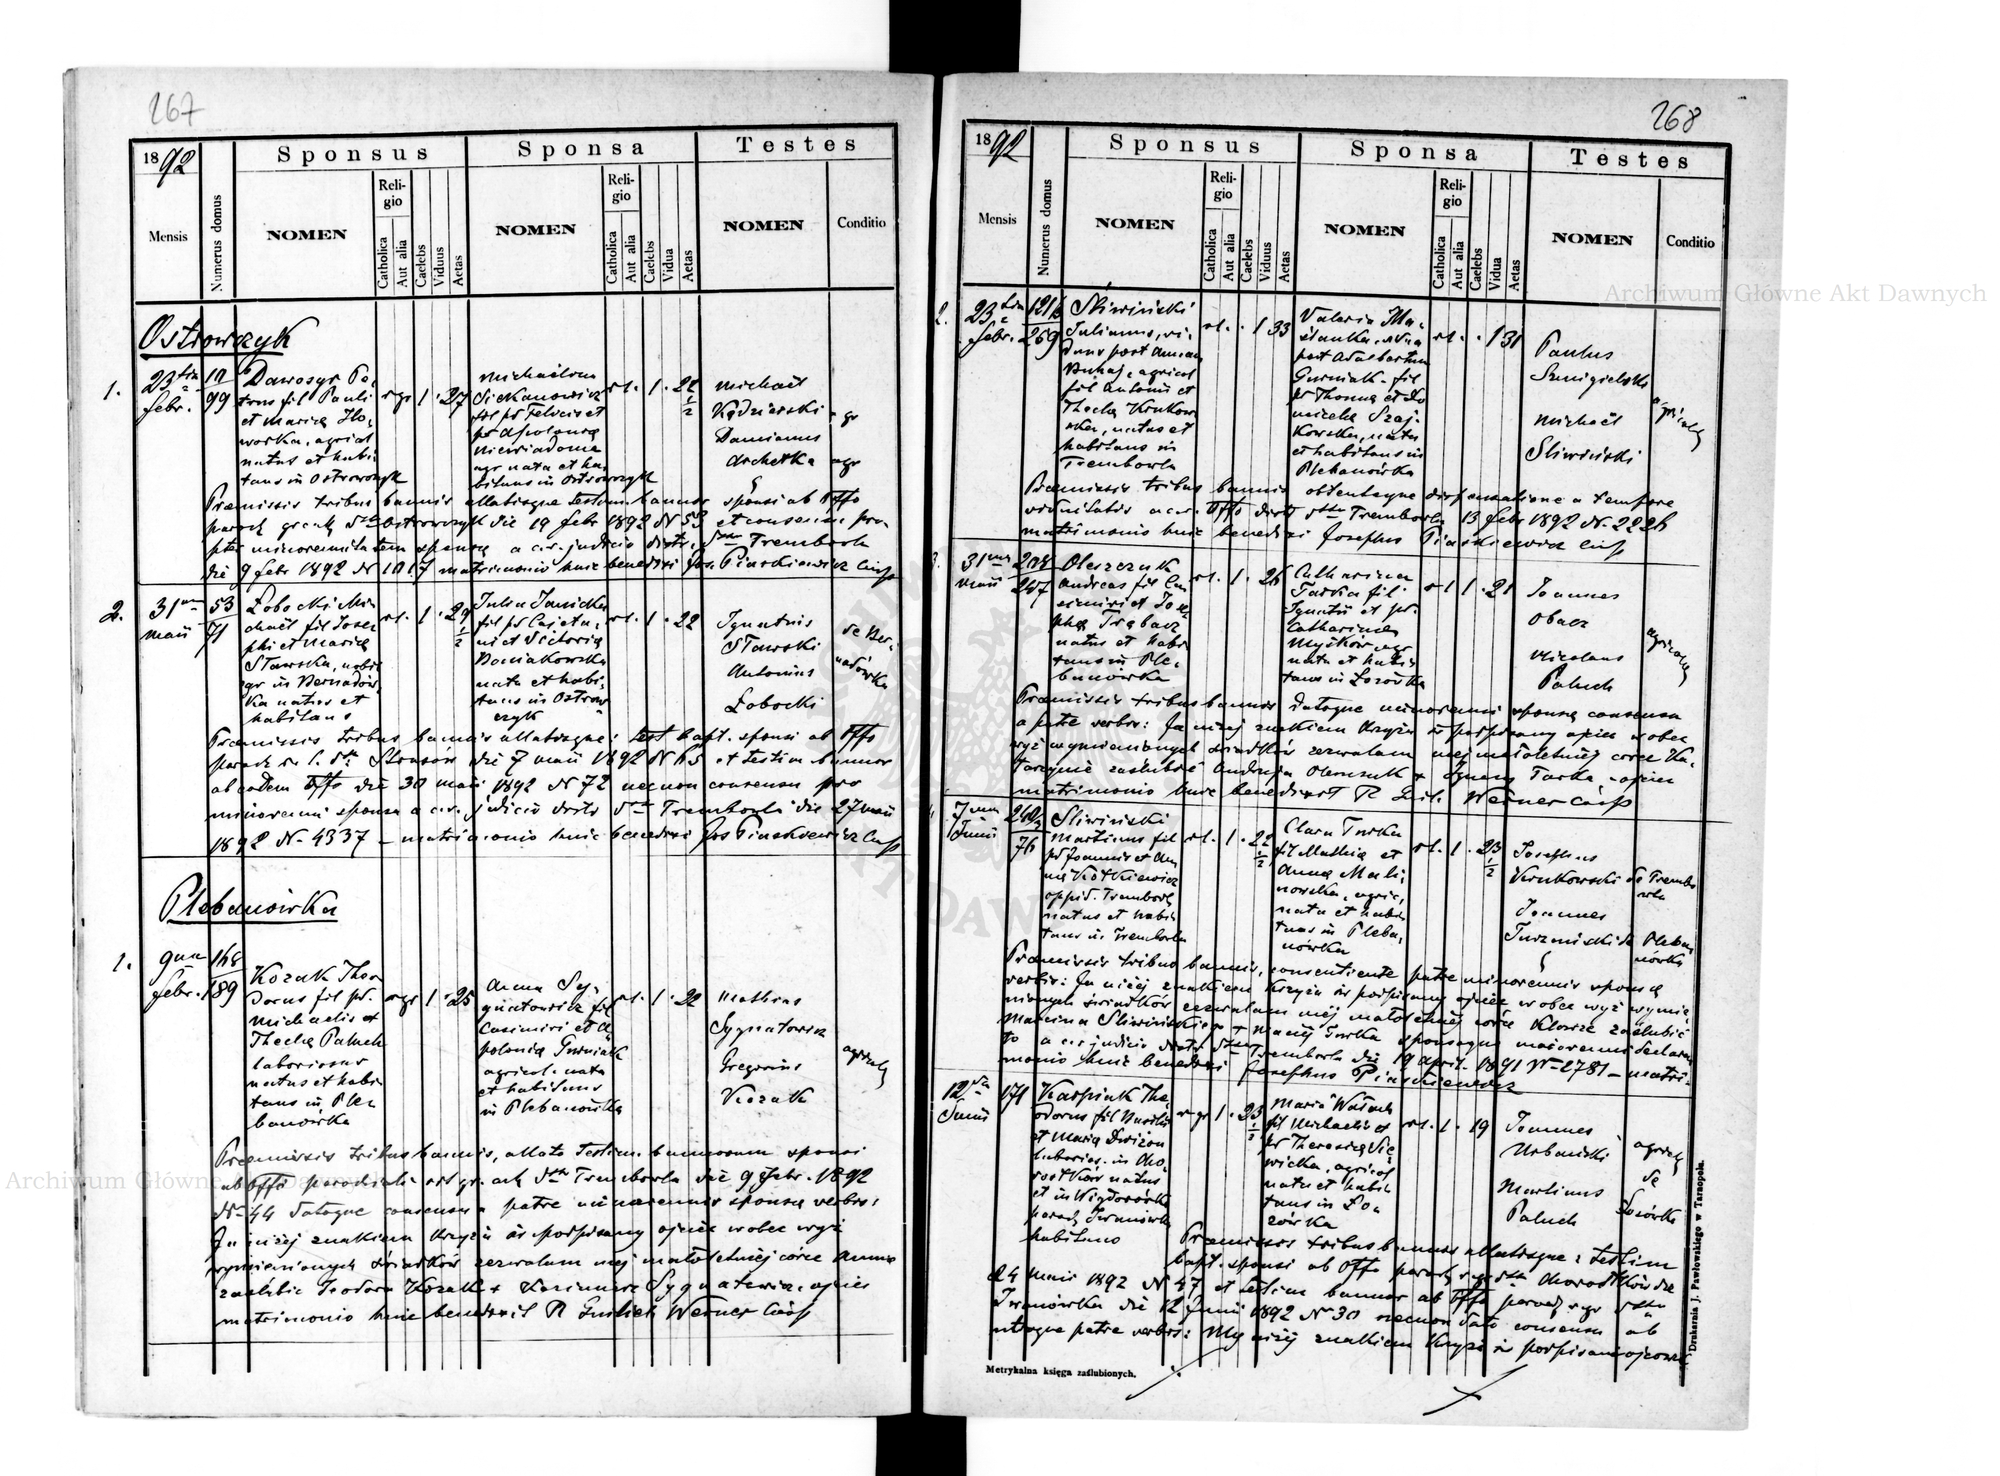 267
18 92
Sponsus
Sponsa
Testes
Mensis
Numerus domus
NOMEN
Religio
Catholica
Aut alia
Caelebs
Viduus
Aetas
NOMEN
Religio
Catholica
Aut alia
Caelebs
Vidua
Aetas
NOMEN
Conditio
Ostrowczyk
1.
23tia
febr.
99
Petrus fil Pauli
et Maria
worka, agricol
natus et habi
tans in Ostrowczyk
r gr
1
27
Michaëlina
fil
Apolonia
agr nata et ha
bitans in Ostrowczyk
r l.
1
22 1/2
Michaël
Kędzierski
agr
Damianus
agr
Praemissis tribus bannis allatisque testim bannor sponsi ab Offo
paroch gr cath Ostrowczyk die 19 febr 1892 N 53 et consensu pro
pter minorennitatem sponsa a c.r. judicio distr. Trembowla
die 9 febr 1892 N 1017 matrimonio huic benedixi Jos. Piaskiewicz
2.
31ma
Maii
53
71
Łobocki Mi
chaël fil Jose
phi et Maria
Stawska, nobil
agr in Bernadów
ka natus et
habitans
r l.
1
29 1/2
Julia Janicka
fil Cajeta
ni et Victoria
nata et habi
tans in Ostrow
czyk
r l.
1
22
Ignatius
Stawski
Antonius
Łobocki
de Ber
nadówka
Praemissis tribus bannis allatisque: test bapt. sponsi ab Offo
paroch r. l. Strusów die 7 maii 1892 N 65 et testim bannor
ab eodem Offo die 30 maii 1892 N 72 necnon consensu pro
minorenni sponsa a c.r. judicio distr Trembowla die 27 maii
1892 N 4337 – matrimonio huic benedixi Jos Piaskiewicz
Plebanówka
1.
9na
febr.
168
189
Kozak Theo
dorus fil
Michaelis et
Thecla Paluch
laboriosus
natus et habi
tans in Ple
banówka
r gr
1
25
Anna Sy
gnatowicz fil
Casimiri et A
polonia Gurniak
agricol. nata
et habitans
in Plebanówka
r l.
1
22
Mathias
Sygnatowicz
Gregorius
Kozak
agricolae
Praemissis tribus bannis, allato testim. bannorum sponsi
ab Offo parochiali rit gr. cath Trembowla die 9 febr. 1892
N 44 datoque consensu a patre minorennis sponsa verbis:
Ja niżej znakiem krzyża św podpisany ojciec wobec wyż
wymienionych świadków zezwalam mej małoletniej córce Anna
zaślubić Teodora Kozak + Kazimierz Sygnatowicz ojciec
matrimonio huic benedixit R Werner
268
18 92
Sponsus
Sponsa
Testes
Mensis
Numerus domus
NOMEN
Religio
Catholica
Aut alia
Caelebs
Viduus
Aetas
NOMEN
Religio
Catholica
Aut alia
Caelebs
Vidua
Aetas
NOMEN
Conditio
2.
23tia
febr.
269
Śliwiński
Julianus, vi
duus post Annam
agricol
fil Antonii et
Thecla Krukow
ska, natus et
habitans in
Trembowla
r l.
1
33
Valeria Ma
ślanka, vidua
post Adalbertum
Gurniak fil
Thoma et Do
micela Szaj
kowska, nata
et habitans in
Plebanówka
r l.
1
31
Paulus
Szmigielski
Michaël
Śliwiński
agricolae
Praemissis tribus bannis obtentaque dispensatione a tempore
viduitatis a c.r. Offo distr Trembowla 13 febr 1892 N 2226
matrimonio huic benedixi Josephus Piaskiewicz
3.
31ma
Maii
247
Oleszczuk
Andreas fil Ca
simiri et Jose
pha Trębacz
natus et habi
tans in Ple
banówka
r l.
1
26
Catharina
Turka fil
Ignatii et
Catharina
Myśków, agr
nata et habi
tans in Łozówka
r l
1
21
Joannes
Obacz
Nicolaus
Paluch
agricolae
Praemissis tribus bannis datoque minorenni sponsa consensu
a patre verbis: Ja niżej znakiem krzyża św podpisany ojciec wobec
wyż wymienionych świadków zezwalam mej małoletniej córce Ka
tarzynie zaślubić Andrzeja Oleszczuk + Ignacy Turka – ojciec
matrimonio huic benedixit R Werner
7ma
Junii
76
Śliwiński
Martinus fil
Joannis et An
na Kotkiewicz
oppid. Trembowla
natus et habi
tans in Trembowla
r l.
1
22 1/2
Clara Turka
fil Mathia et
Anna Mali
nowska, agric,
nata et habi
tans in Pleba
nówka
r l.
1
23 1/2
Josephus
Krukowski
de Trembo
wla
Joannes
de Pleba
nówka
Praemissis tribus bannis, consentiente patre minorennis sponsa
verbis: Ja niżej znakiem krzyża św podpisany ojciec wobec wyż wymie
nionych świadków zezwalam mej małoletniej córce Klarze zaślubić
Marcina Śliwińskiego + Maciej Turka sponsoque majorenni declara
to a c.r. judicio distr Trembowla die 19 April. 1891 N 2781 – matri
monio huic benedixi Josephus Piaskiewicz
12
Junii
171
Karpiuk The
odorus fil Basilii
et Maria
laborios. in Cho
rostków natus
et in Wigdorówka
paroch Iwanówka
habitans
r gr
1
23 1/2
Maria
fil Michaelis et
Theresia Sie
wicka, agricol
nata et habi
tans in Ło
zówka
r l.
1
19
Joannes
Urbański
Martinus
Paluch
agricolae
de
Łozówka
Praemissis tribus bannis allatisque: testim
bapt. sponsi ab Offo paroch r gr Chorostków die
24 Maii 1892 N 47 et testim bannor ab Offo paroch r gr
Iwanówka die 12 Junii 1892 N 30 necnon dato consensu ab
utroque patre verbis: My niżej znakiem krzyża św podpisani ojcowie
Metrykalna księga zaślubionych.
Drukarnia J. Pawłowskiego w Tarnopolu.
Archiwum Główne Akt Dawnych
Archiwum Główne Akt Dawnych